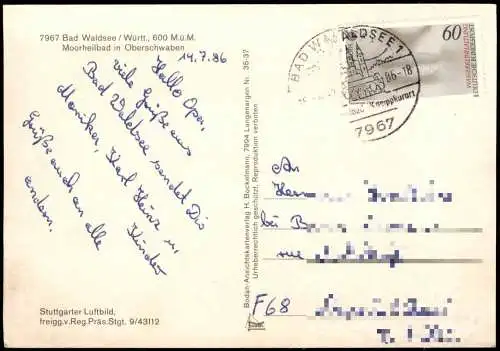 7967 Bad Waldsee / Württ., 600 M.ü.M.
Moorheilbad in Oberschwaben
14.7.86
Hallo Opa,
viele Grüße aus
Bad Waldsee sendet Dir
Monika, Karl Heinz u.
Kinder
Grüße auch an alle
andern.
Stuttgarter Luftbild,
freigg.v.Reg.Präs.Stgt. 9/43112
Bodan-Ansichtskartenverlag H. Bockelmann, 7994 Langenargen Nr. 36-37
Urheberrechtlich geschützt, Reproduktion verboten
BAD WALDSEE 1
86-18
Kneippkurort
7967
60
DEUTSCHE BUNDESPOST
An
Herrn
bei
rue
F68